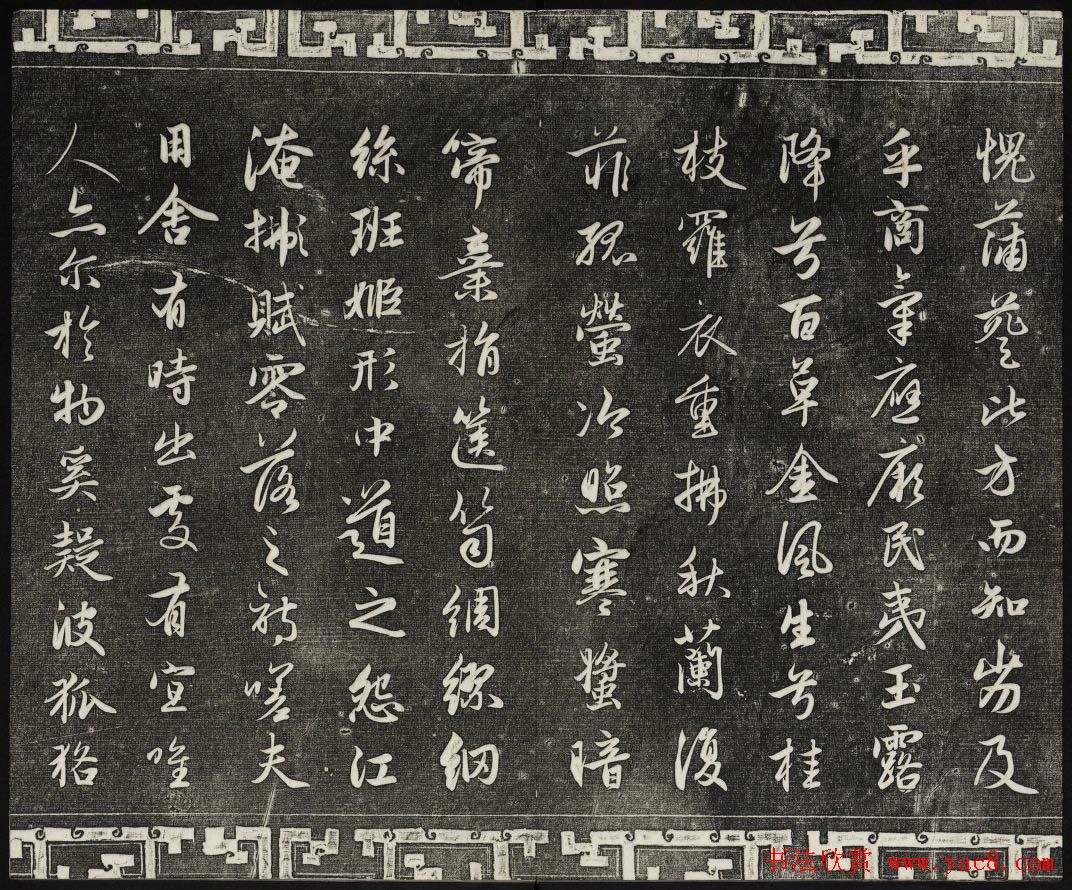 愧蒲葵比方而知劣及
乎商氣應厥民夷玉露
降兮百草金風生兮桂
枝羅衣重拂秋蘭復
菲孤螢冷照寒螿暗
啼棄捐篋笥綢繆網
絲班姬形中道之怨江
淹賦零落之詩嗟夫
用舍有時出處有宜唯
人亦尔於物奚疑彼狐狢
书法欣赏 www.yac8.com